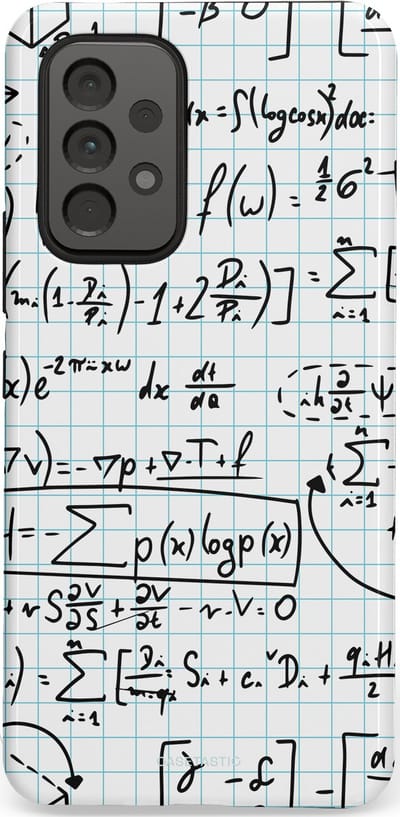 -β 0
dx = ∫(logcosx)²dx:
f(w) = 1/2 6²
(mᵢ(1-Dᵢ/Pᵢ)-1+2Dᵢ/Pᵢ)] = ∑ⁿᵢ₌₁ [
x)e^-2πixw dx dt/dQ (iħ∂/∂t ψ
∇v)=-∇p+∇·T+f (∑ⁿᵢ₌₁ -
H=-∑p(x)logp(x)
+rS∂V/∂S+∂V/∂t-r·V=0
) = ∑ⁿᵢ₌₁ [Dᵢ Sᵢ + cᵢᵛDᵢ + qᵢH/2
CASETASTIC